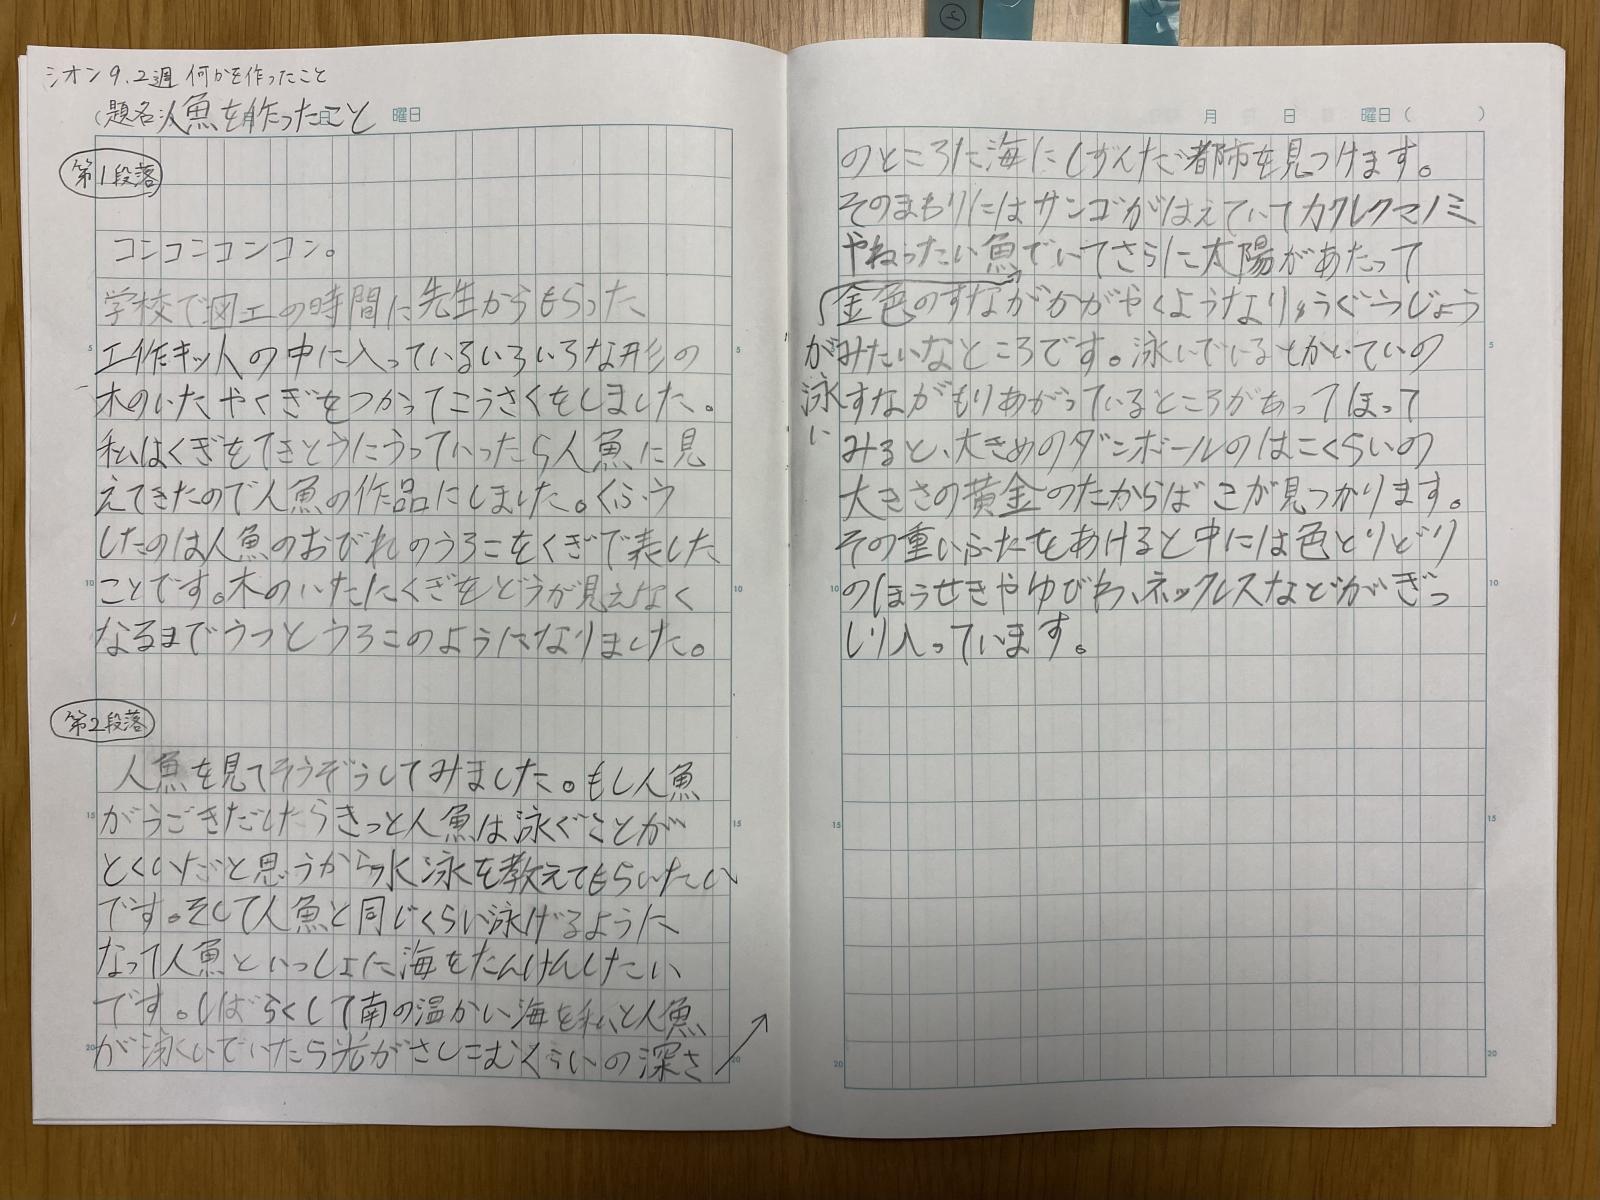 シオン 9.2週 何かを作ったこと
(題名 人魚を作ったこと 曜日
第1段落
コンコンコンコン。
学校で図工の時間に先生からもらった
工作キットの中に入っているいろいろな形の
木のいたやくぎをつかってこうさくをしました。
私はくぎをてきとうにうっていったら人魚に見
えてきたので人魚の作品にしました。くふう
したのは人魚のおびれのうろこをくぎで表した
ことです。木のいたにくぎをどうが見えなく
なるまでうつとうろこのようになりました。
第2段落
人魚を見てそうぞうしてみました。もし人魚
がうごきだしたらきっと人魚は泳ぐことが
とくいだと思うから水泳を教えてもらいたい
です。そして人魚と同じくらい泳げるように
なって人魚といっしょに海をたんけんしたい
です。しばらくして南の温かい海を私と人魚
が泳いでいたら光がさしこむくらいの深さ
5
10
15
20
月 日 曜日( )
のところに海にしずんだ都市を見つけます。
そのまわりにはサンゴがはえていてカクレクマノミ
やねったい魚でいてさらに太陽があたって
が泳い
金色のすながかがやくようなりゅうぐうじょう
みたいなところです。泳いでいるとかいていの
すながもりあがっているところがあってほって
みると、大きめのダンボールのはこくらいの
大きさの黄金のたからばこが見つかります。
その重いふたをあけると中には色とりどり
のほうせきやゆびわ、ネックレスなどがぎっ
しり入っています。
5
10
15
20